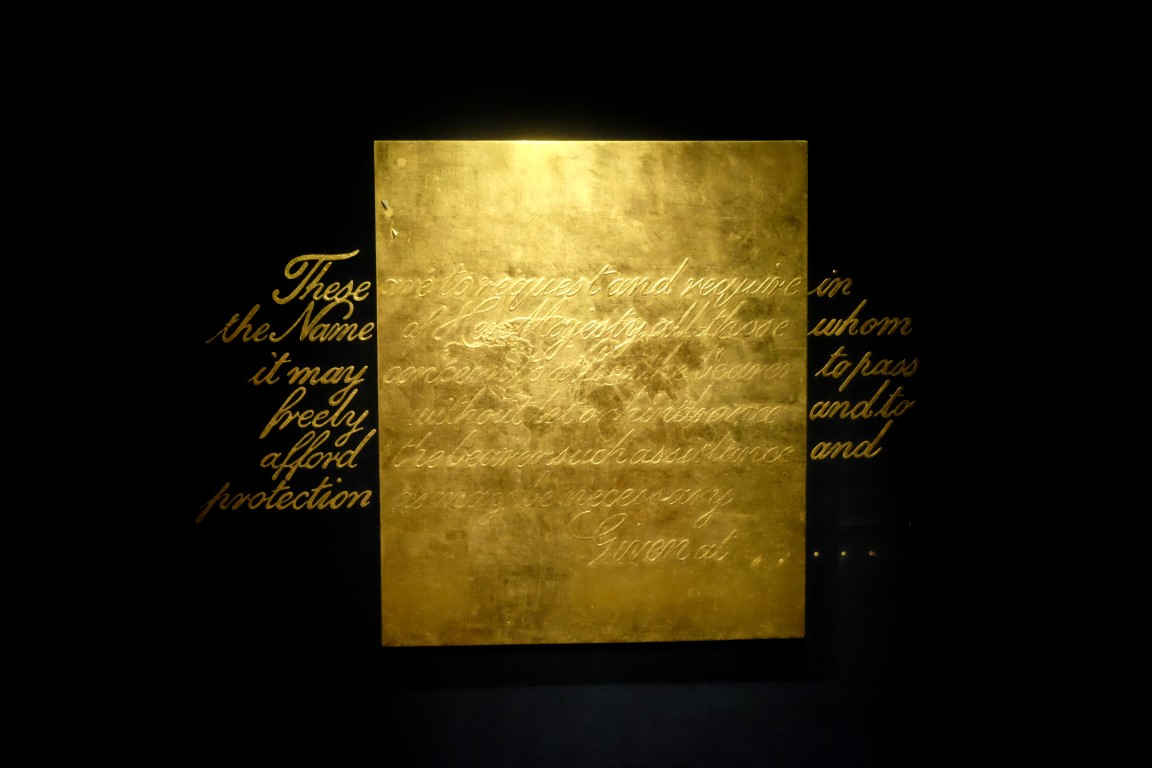 These are to request and require in
the Name of Her Majesty all those whom
it may concern to allow the bearer to pass
freely without let or hindrance and to
afford the bearer such assistance and
protection as may be necessary
Given at . . . . .